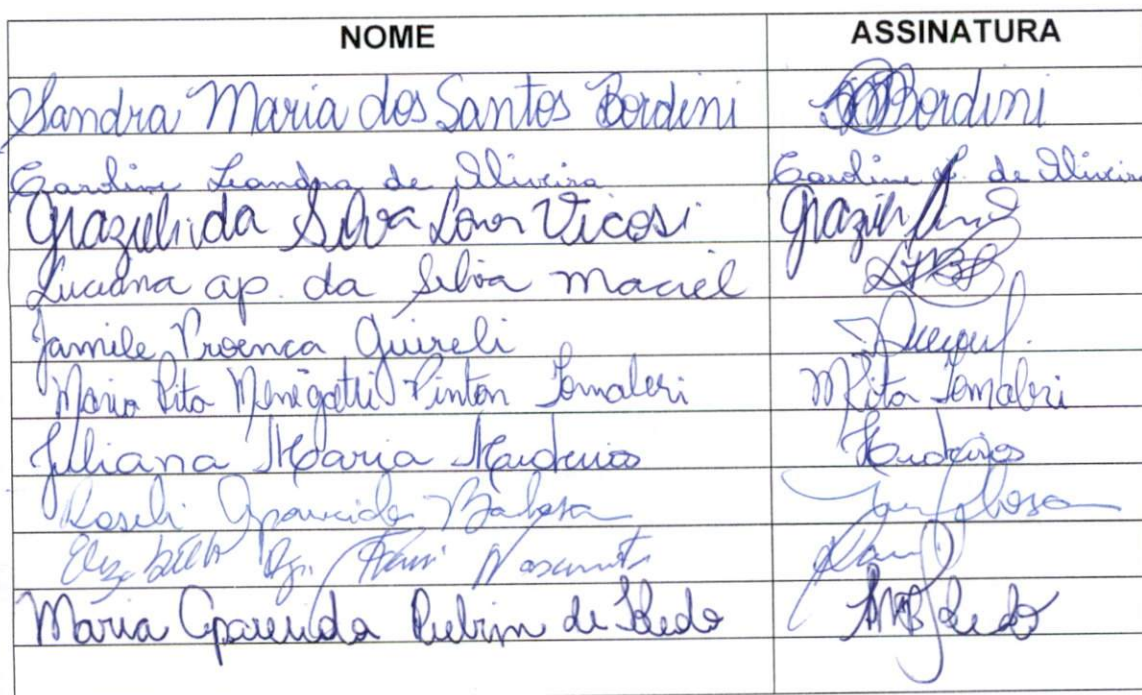 NOME ASSINATURA
Sandra Maria dos Santos Bordini Bordini
Caroline Leandra de Oliveira Caroline L. de Oliveira
Grazieli da Silva Vicosi Grazieli
Luciana ap. da Silva Maciel
Jamile Proenca Quireli
Maria Rita Menegatti Pinton Tomaleri M Rita Tomaleri
Juliana Maria Medeiros Medeiros
Roseli Aparecida Barbosa Barbosa
Elizabeth Ap. Nascimento
Maria Aparecida Rubim de Toledo Toledo